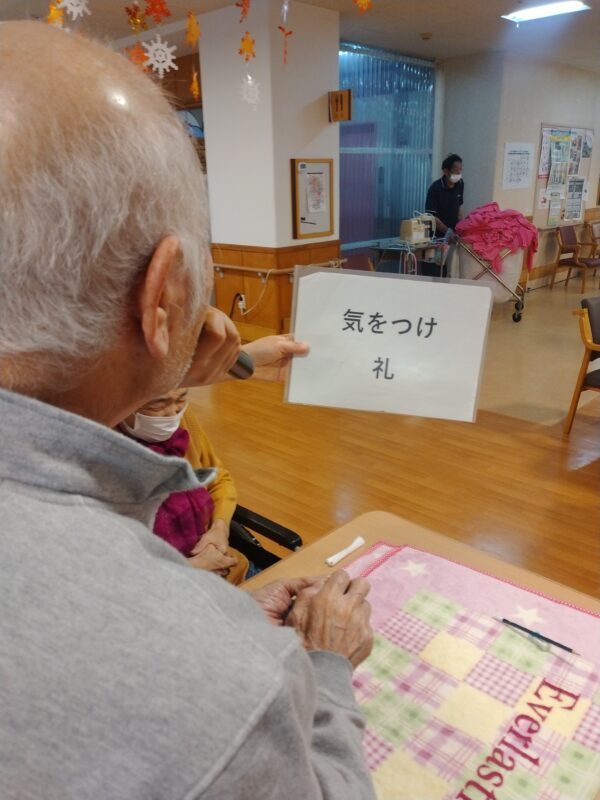 気をつけ
礼
Everlasti